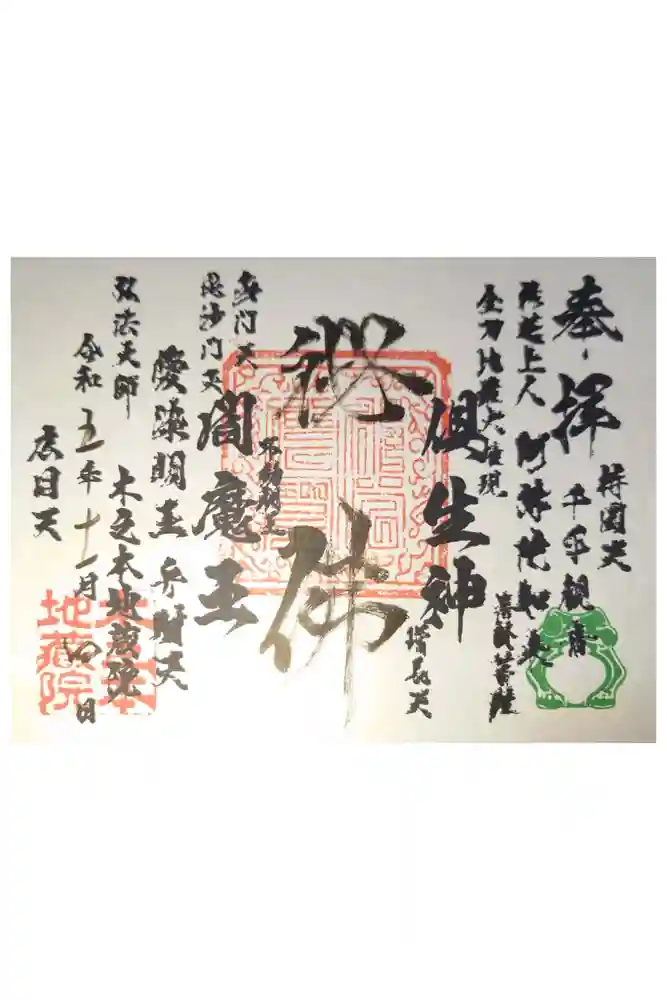 奉拝
持国天
千手観音
阿弥陀如来
善財菩薩
金刀比羅大権現
倶生神
増長天
秘仏
不動明王
多門天
毘沙門天
閻魔王
愛染明王
弁財天
弘法大師
木之本地蔵院
令和五年十一月四日
広目天
木之本
地蔵院